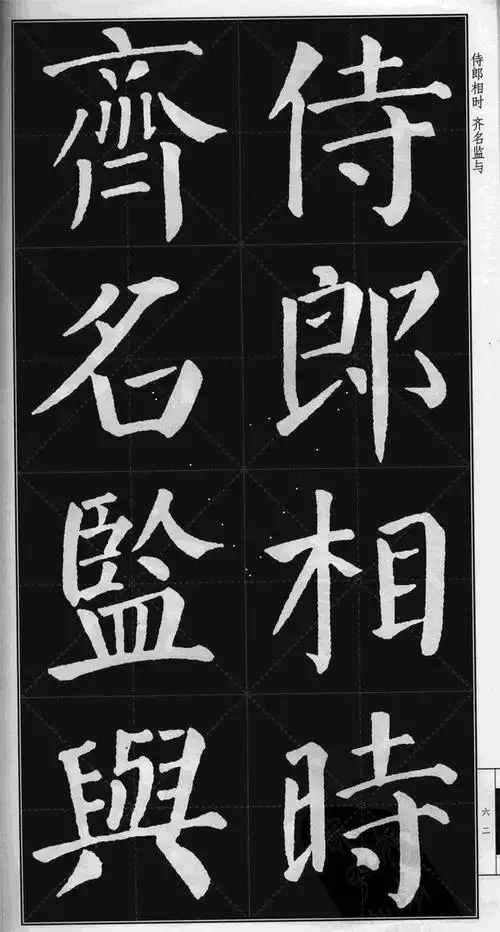 侍郎相時
齊名監與
侍郎相时 齐名监与
六二